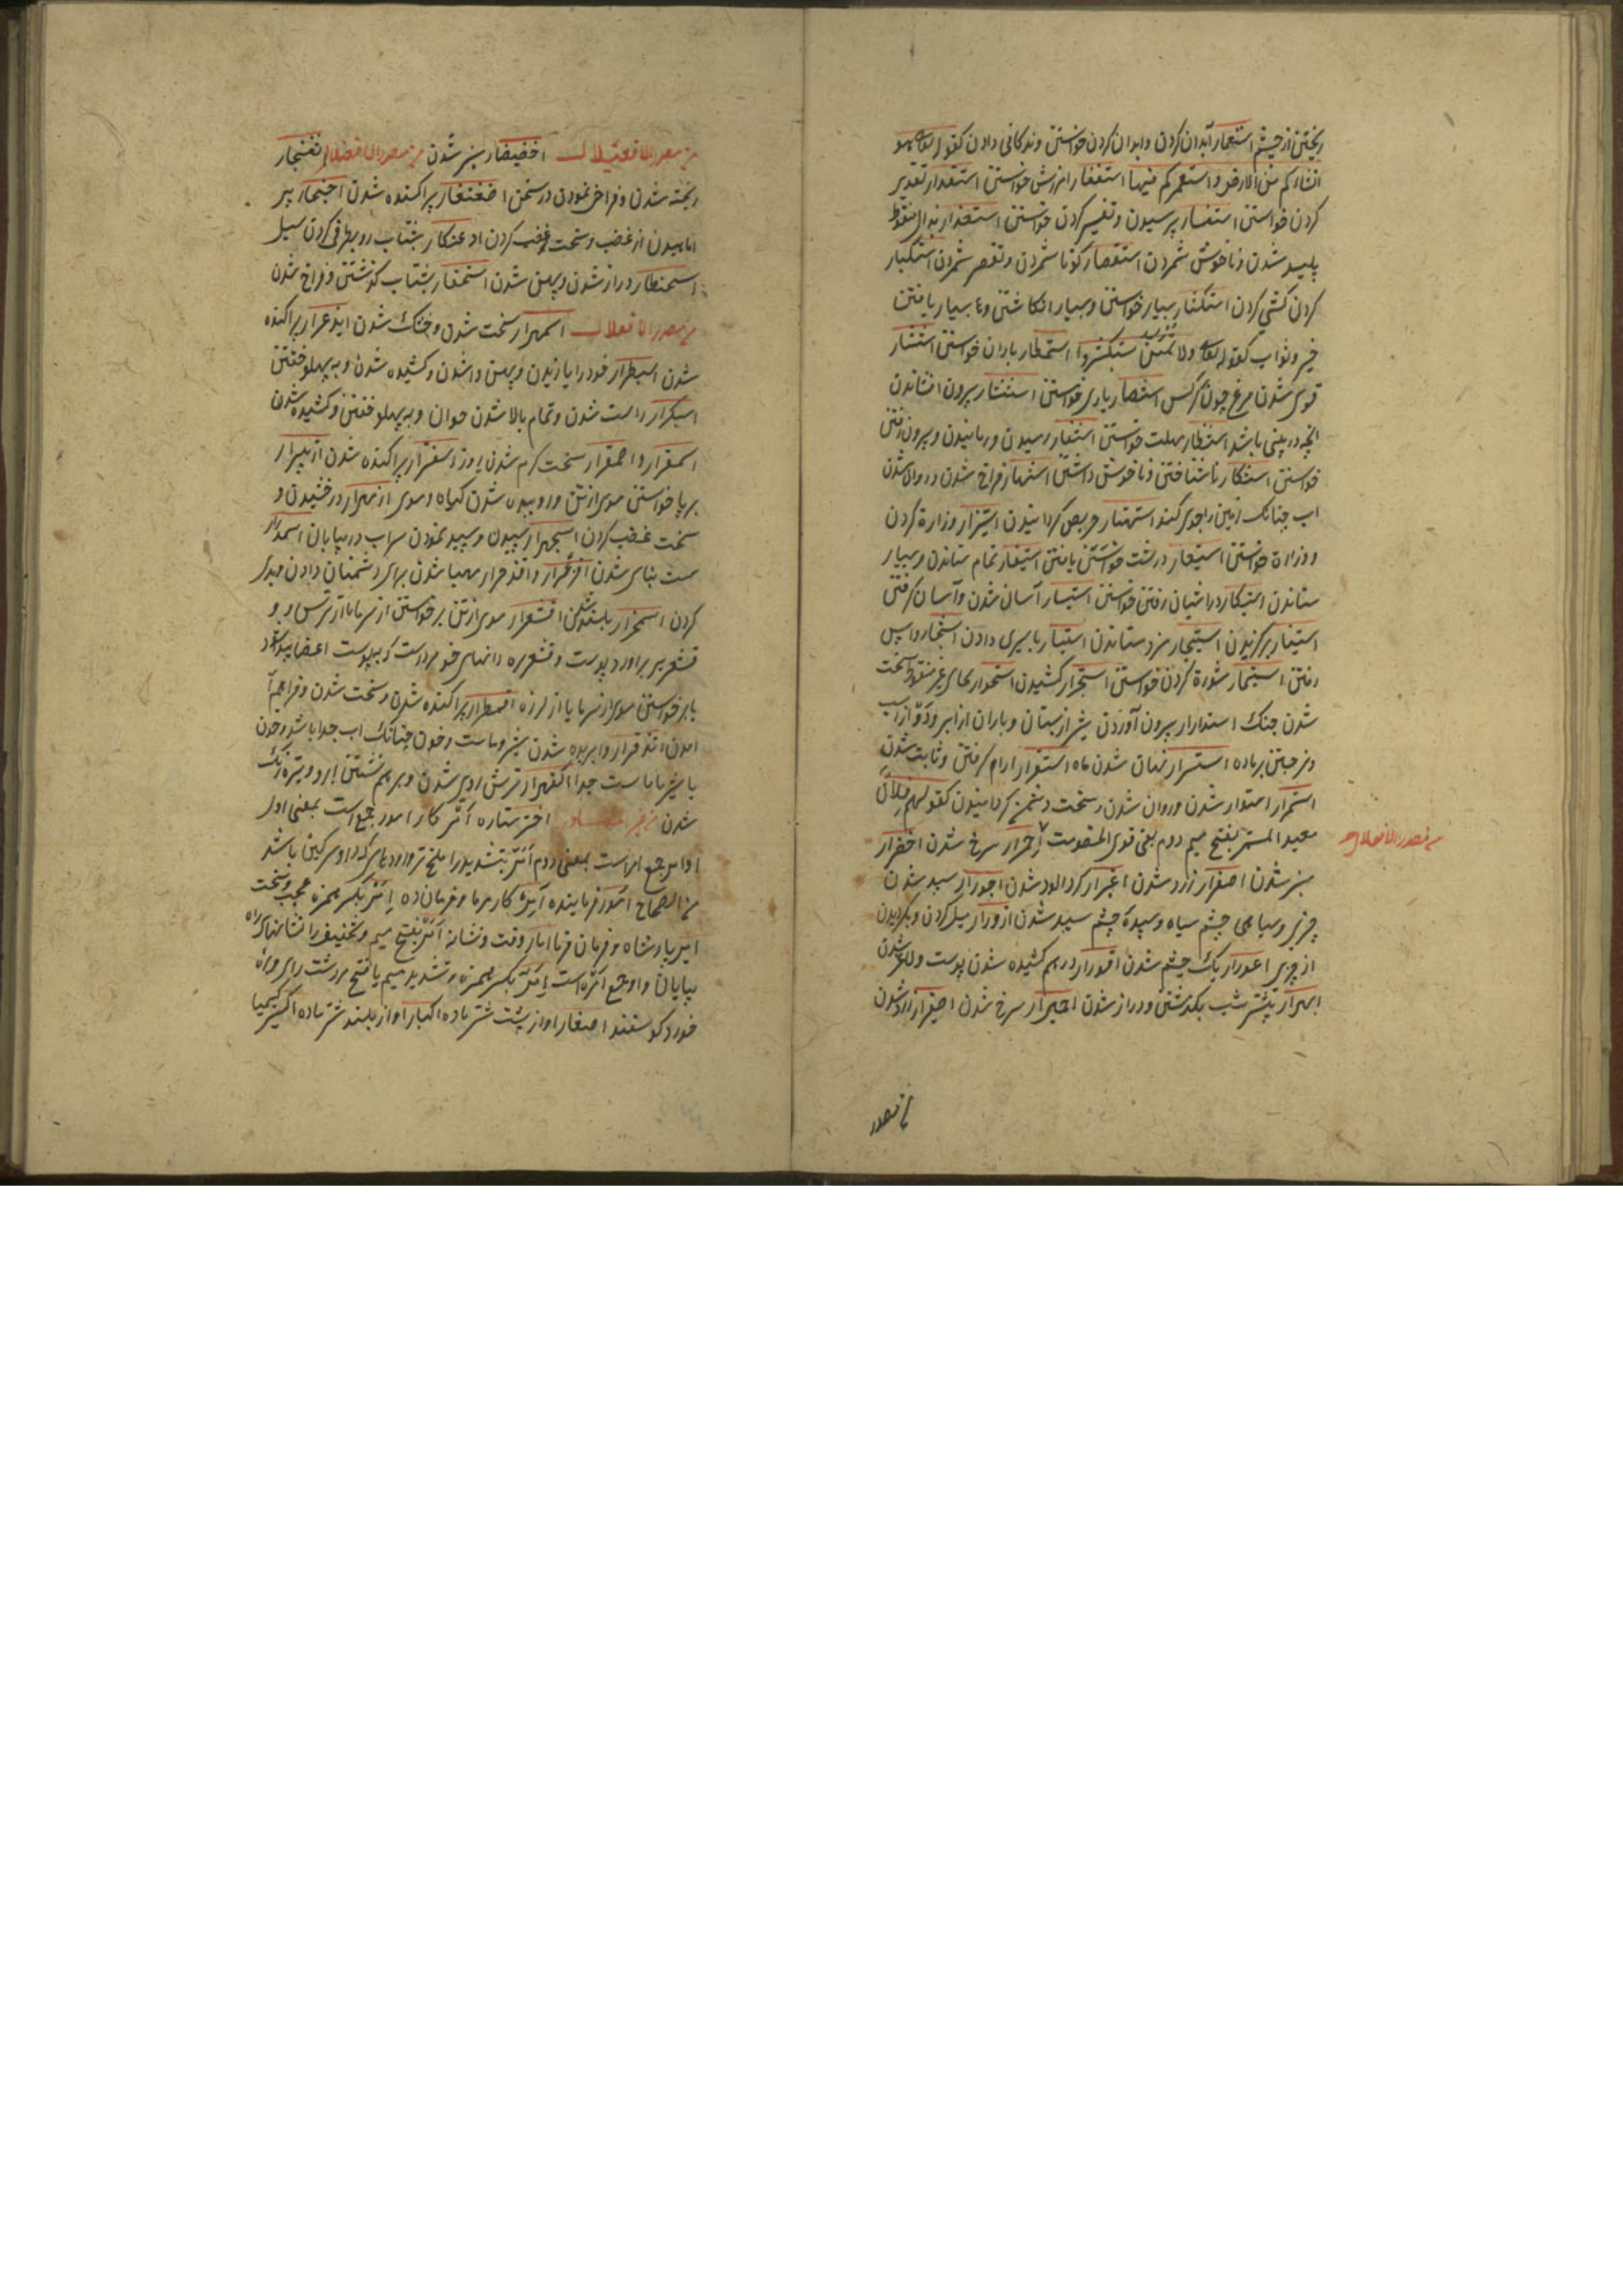 ریختن از چشم استعمار آبدان کردن و ابدان کردن خواستن و زندکانی دادن کقوله تعالی هو
انشاءکم من الارض و استعمرکم فیها استغفار امرزش خواستن استقدار تقدیر
کردن خواستن استفسار پرسیدن و تفسیر کردن خواستن استقذار بذال منقوط
پلید شدن و ناخوش شمردن استقصار کوتا شمردن و تقصیر شمردن استکبار
کردن کشی کردن استکثار بسیار خواستن و بسیار انکاشتن و بسیار یافتن
خیر و ثواب کقوله تعالی ولا تمنن تستکثر استمطار باران خواستن استنسار
قوی شدن مرغ چون کرکس استنصار یاری خواستن استنثار بیرون افشاندن
انچه در بینی باشد استنظار مهلت خواستن استنفار رمیدن و رمانیدن و بیرون رفتن
خواستن استنکار ناشناختن و ناخوش داشتن استنهار فراخ شدن و روان شدن
اب چنانک زمین را جوی کند استهتار حریص کردانیدن استیزار وزارة کردن
و وزارة خواستن استیعار درشت یافتن استیفار تمام ستاندن و بسیار
ستاندن استیکار در اشیان رفتن خواستن استیسار آسان شدن و آسان کرفتن
استیثار برکزیدن استیجار مزد ستاندن استیسار باسیری دادن استیخار واپس
رفتن استیمار شورة کردن خواستن استجرار کشیدن استحرار بحای غیر منقوط سخت
شدن جنک استدرار بیرون آوردن شیر از پستان و باران از ابر و دو از اسب
و نر جستن بر ماده استسرار نهان شدن ماه استقرار ارام کرفتن و ثابت شدن
استمرار استوار شدن و روان شدن و سخت کقولهم فلان
بعید المستمر بفتح میم دوم یعنی قوی الخصومت احمرار سرخ شدن اخضرار
من مصدر الافعلال
سبز شدن اصفرار زرد شدن اغبرار کرد الود شدن احورار سپید شدن
چیزی و سیاهی چشم سیاه و سپیده چشم سپید شدن ازورار میل کردن و بکردیدن
از چیزی اعورار یک چشم شدن اقورار درهم کشیده شدن پوست و لاغر شدن
ابهیرار بیشتر شب بکذشتن و دراز شدن احمیرار سرخ شدن اصفیرار زرد شدن
من مصدر
من مصدر الافعیلال اخضیضار سبز شدن من مصدر الافعنلال اثعنجار
ریخته شدن و فراخ نمودن در سخن پراکنده شدن اجثیجار پر
اماهیدن از غضب و سخت غضب کردن ادعنکار بشتاب رو بطرفی کردن سیل
اسحنطار دراز شدن و پهن شدن اسحنفار بشتاب کذشتن و فراخ شدن
من مصدر الافعلال اسمهرار سخت شدن و خشک شدن ابذعرار پراکنده
شدن اسبطرار خود را یازیدن و پهن واشدن و کشیده شدن و به پهلو خفتن
اسبکرار راست شدن و تمام بالا شدن جوان و به پهلو خفتن و کشیده شدن
اسمقرار و اصمقرار سخت کرم شدن روز اشفترار پراکنده شدن ازبیرار
برپا خواستن موی از تن و روییده شدن کیاه و موی ازمهرار درخشیدن و
سخت غضب کردن اسجهرار سپیدن و سپید نمودن سراب در بیابان اسمدرار
سست بینای شدن و اقذحرار مهیا شدن برای دشمنان دادن و بدی
کردن اسمخرار بلند شدن اقشعرار موی از تن برخواستن از سرما یا از ترس و
قشعریر براورد پوست و قشعریره دانهای خورد است که بپوست اعضا پیدا شود
یا برخواستن موی از سرما یا از لرزه اقمطرار پراکنده شدن و سخت شدن و فراهم
امدن امذقرار وابریده شدن شیر و ماست و خون چنانک اب جدا باشد و خون
یا شیر یا ماست جدا اکفهرار ترش روی شدن و برهم نشستن ابر و تیره رنک
شدن من غیر المصادر اختر ستاره امر کار امور جمع است بمعنی اول
اوامر جمع امر است بمعنی دوم امر بتشدید را تلخ تر و رودهای که در او سرکین باشد
من الصحاح امور فرماینده آمر کار فرما و فرمان ده امر بکسر همزه عجب و سخت
امیر پادشاه و فرمان فرما امار وقت و نشانه امر بفتح میم و تخفیف را نشانهای راه
بیابان و او جمع امره است امر بکسر همزه و تشدید میم با فتح مرد سست رای و بره
خورد کوسفند اصغار اواز پست شتر ماده اکبار اواز بلند شتر ماده اکسیر کیمیا